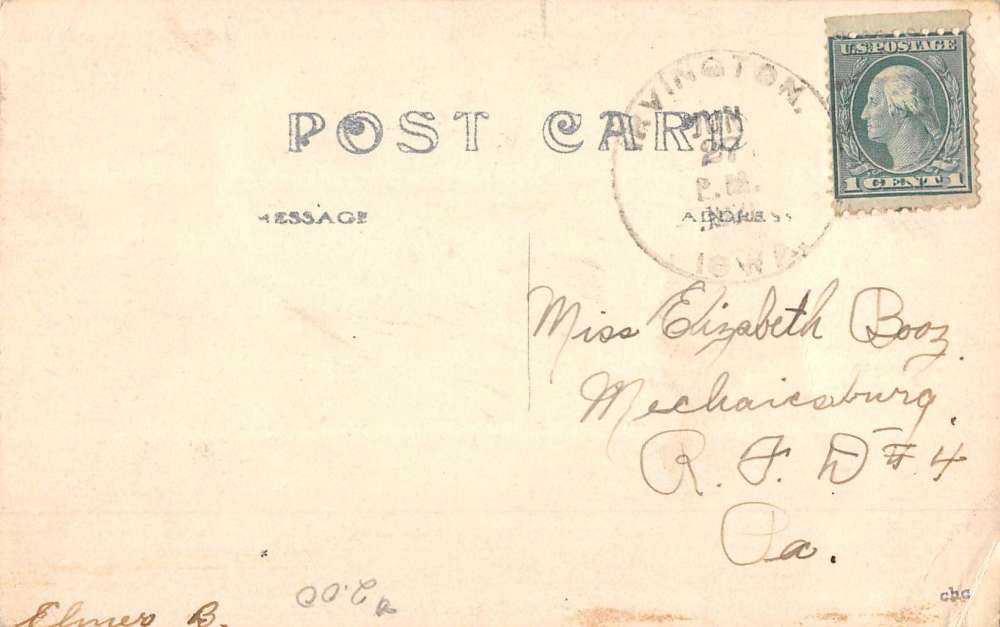 POST CARD
MESSAGE
ADDRESS
IRVINGTON,
JUN
27
P.M.
IOWA
U.S. POSTAGE
1 CENT 1
Miss Elizabeth Booz
Mechaicsburg
R. F. D # 4
Pa.
2.00
Elmer B.
cbc